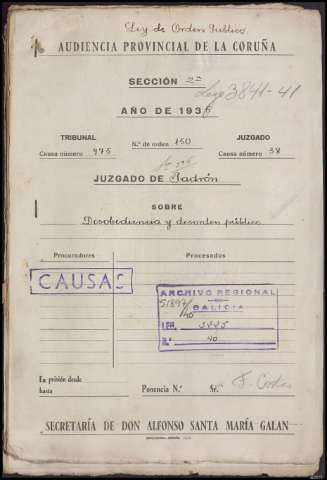 Ley de Orden Publico
AUDIENCIA PROVINCIAL DE LA CORUÑA
SECCIÓN 2ª
Leg 3841-41
AÑO DE 1936
TRIBUNAL
Causa número 975
N.º de orden 150
JUZGADO
Causa número 38
JUZGADO DE Padrón
SOBRE
Desobediencia y desorden público
Procuradores
Procesados
CAUSAS
ARCHIVO REGIONAL
DE
GALICIA
LEG.
N.º 40
En prisión desde
hasta
Ponencia N.º
Sr.
SECRETARÍA DE DON ALFONSO SANTA MARÍA GALAN